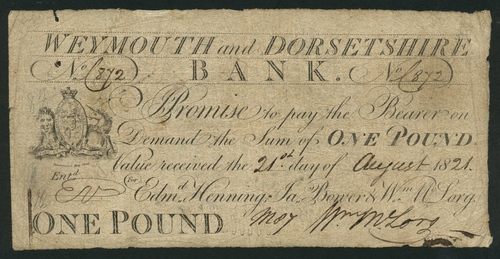 WEYMOUTH and DORSETSHIRE
No. 1872 BANK. No. 1872
I Promise to pay the Bearer on
Demand the Sum of ONE POUND
Value received the 21st day of August 1821.
Entd. For Edmd. Henning, Ja. Bower & Wm. McLorg.
ONE POUND Wm McLorg